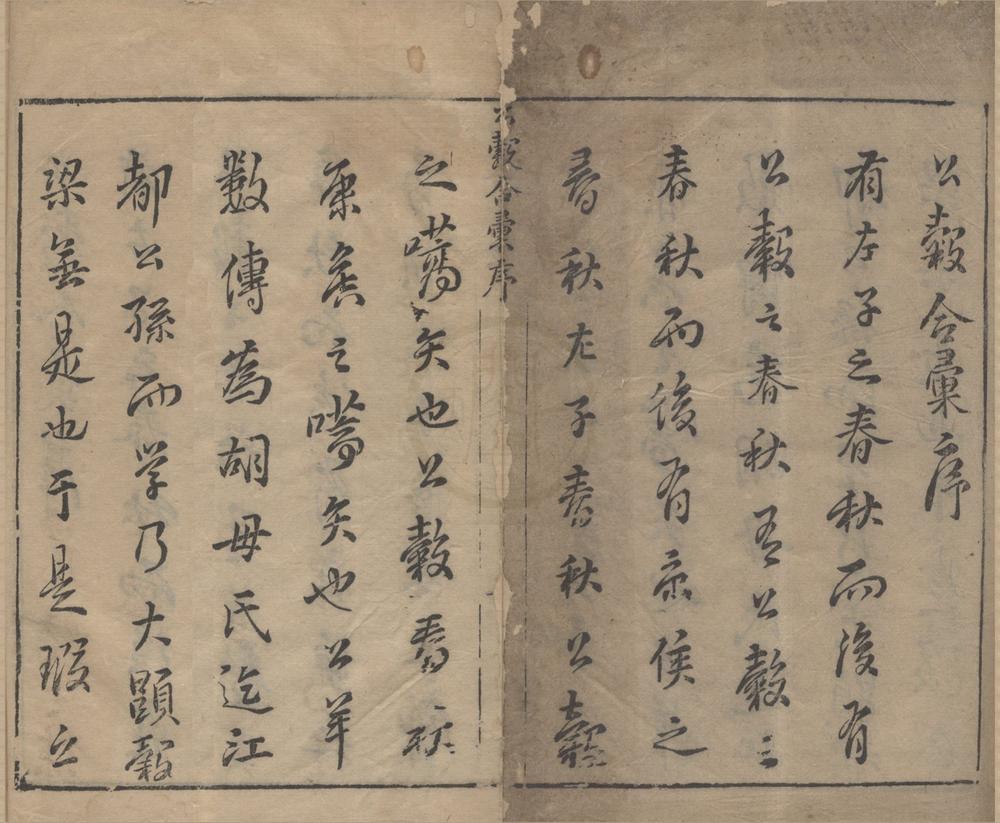 公穀合彙序
有左子之春秋而後有
公穀之春秋有公穀之
春秋而後有京侯之
春秋左子春秋公穀
公穀合彙序
之嚆矢也公穀春秋
康侯之嚆矢也公羊
數傳為胡毋氏迄江
都公孫而学乃大顯穀
梁無是也于是瑕丘